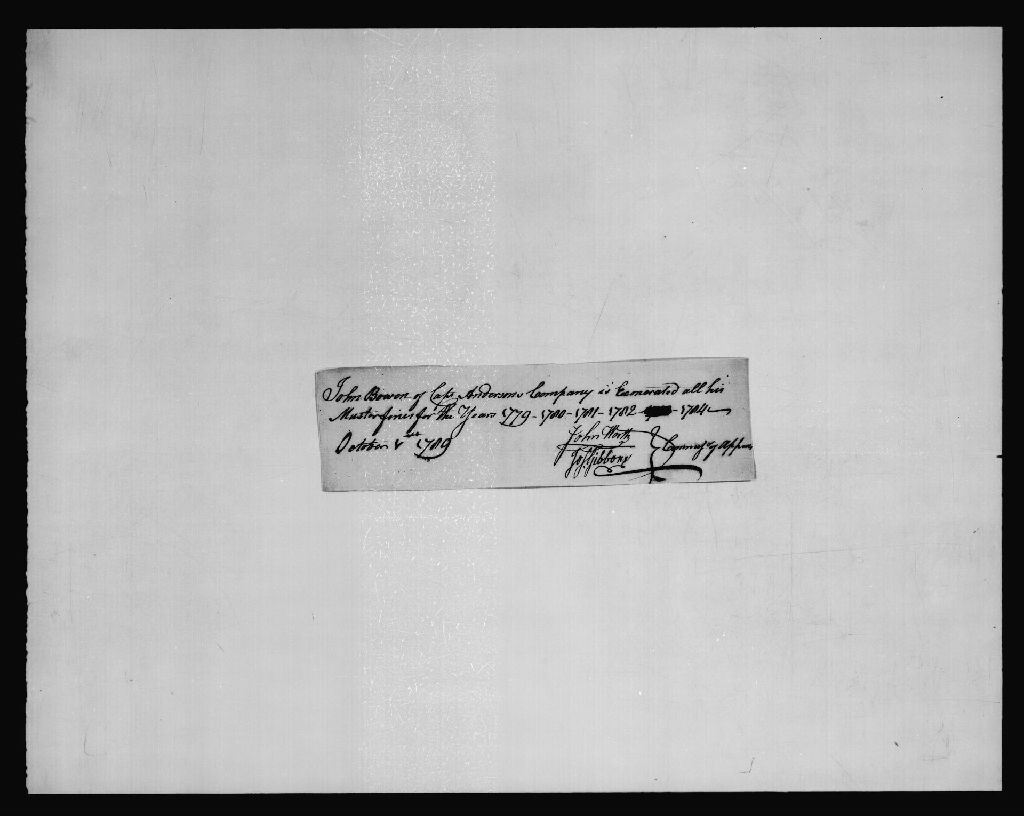 John Bowen of Capt Andersons Company is Exonerated all his
Muster fines for the Years 1779 - 1780 - 1781 - 1782 - 1784
October 1st 1789
John Worth
Jos. Gibbons
Commrs of Appeals